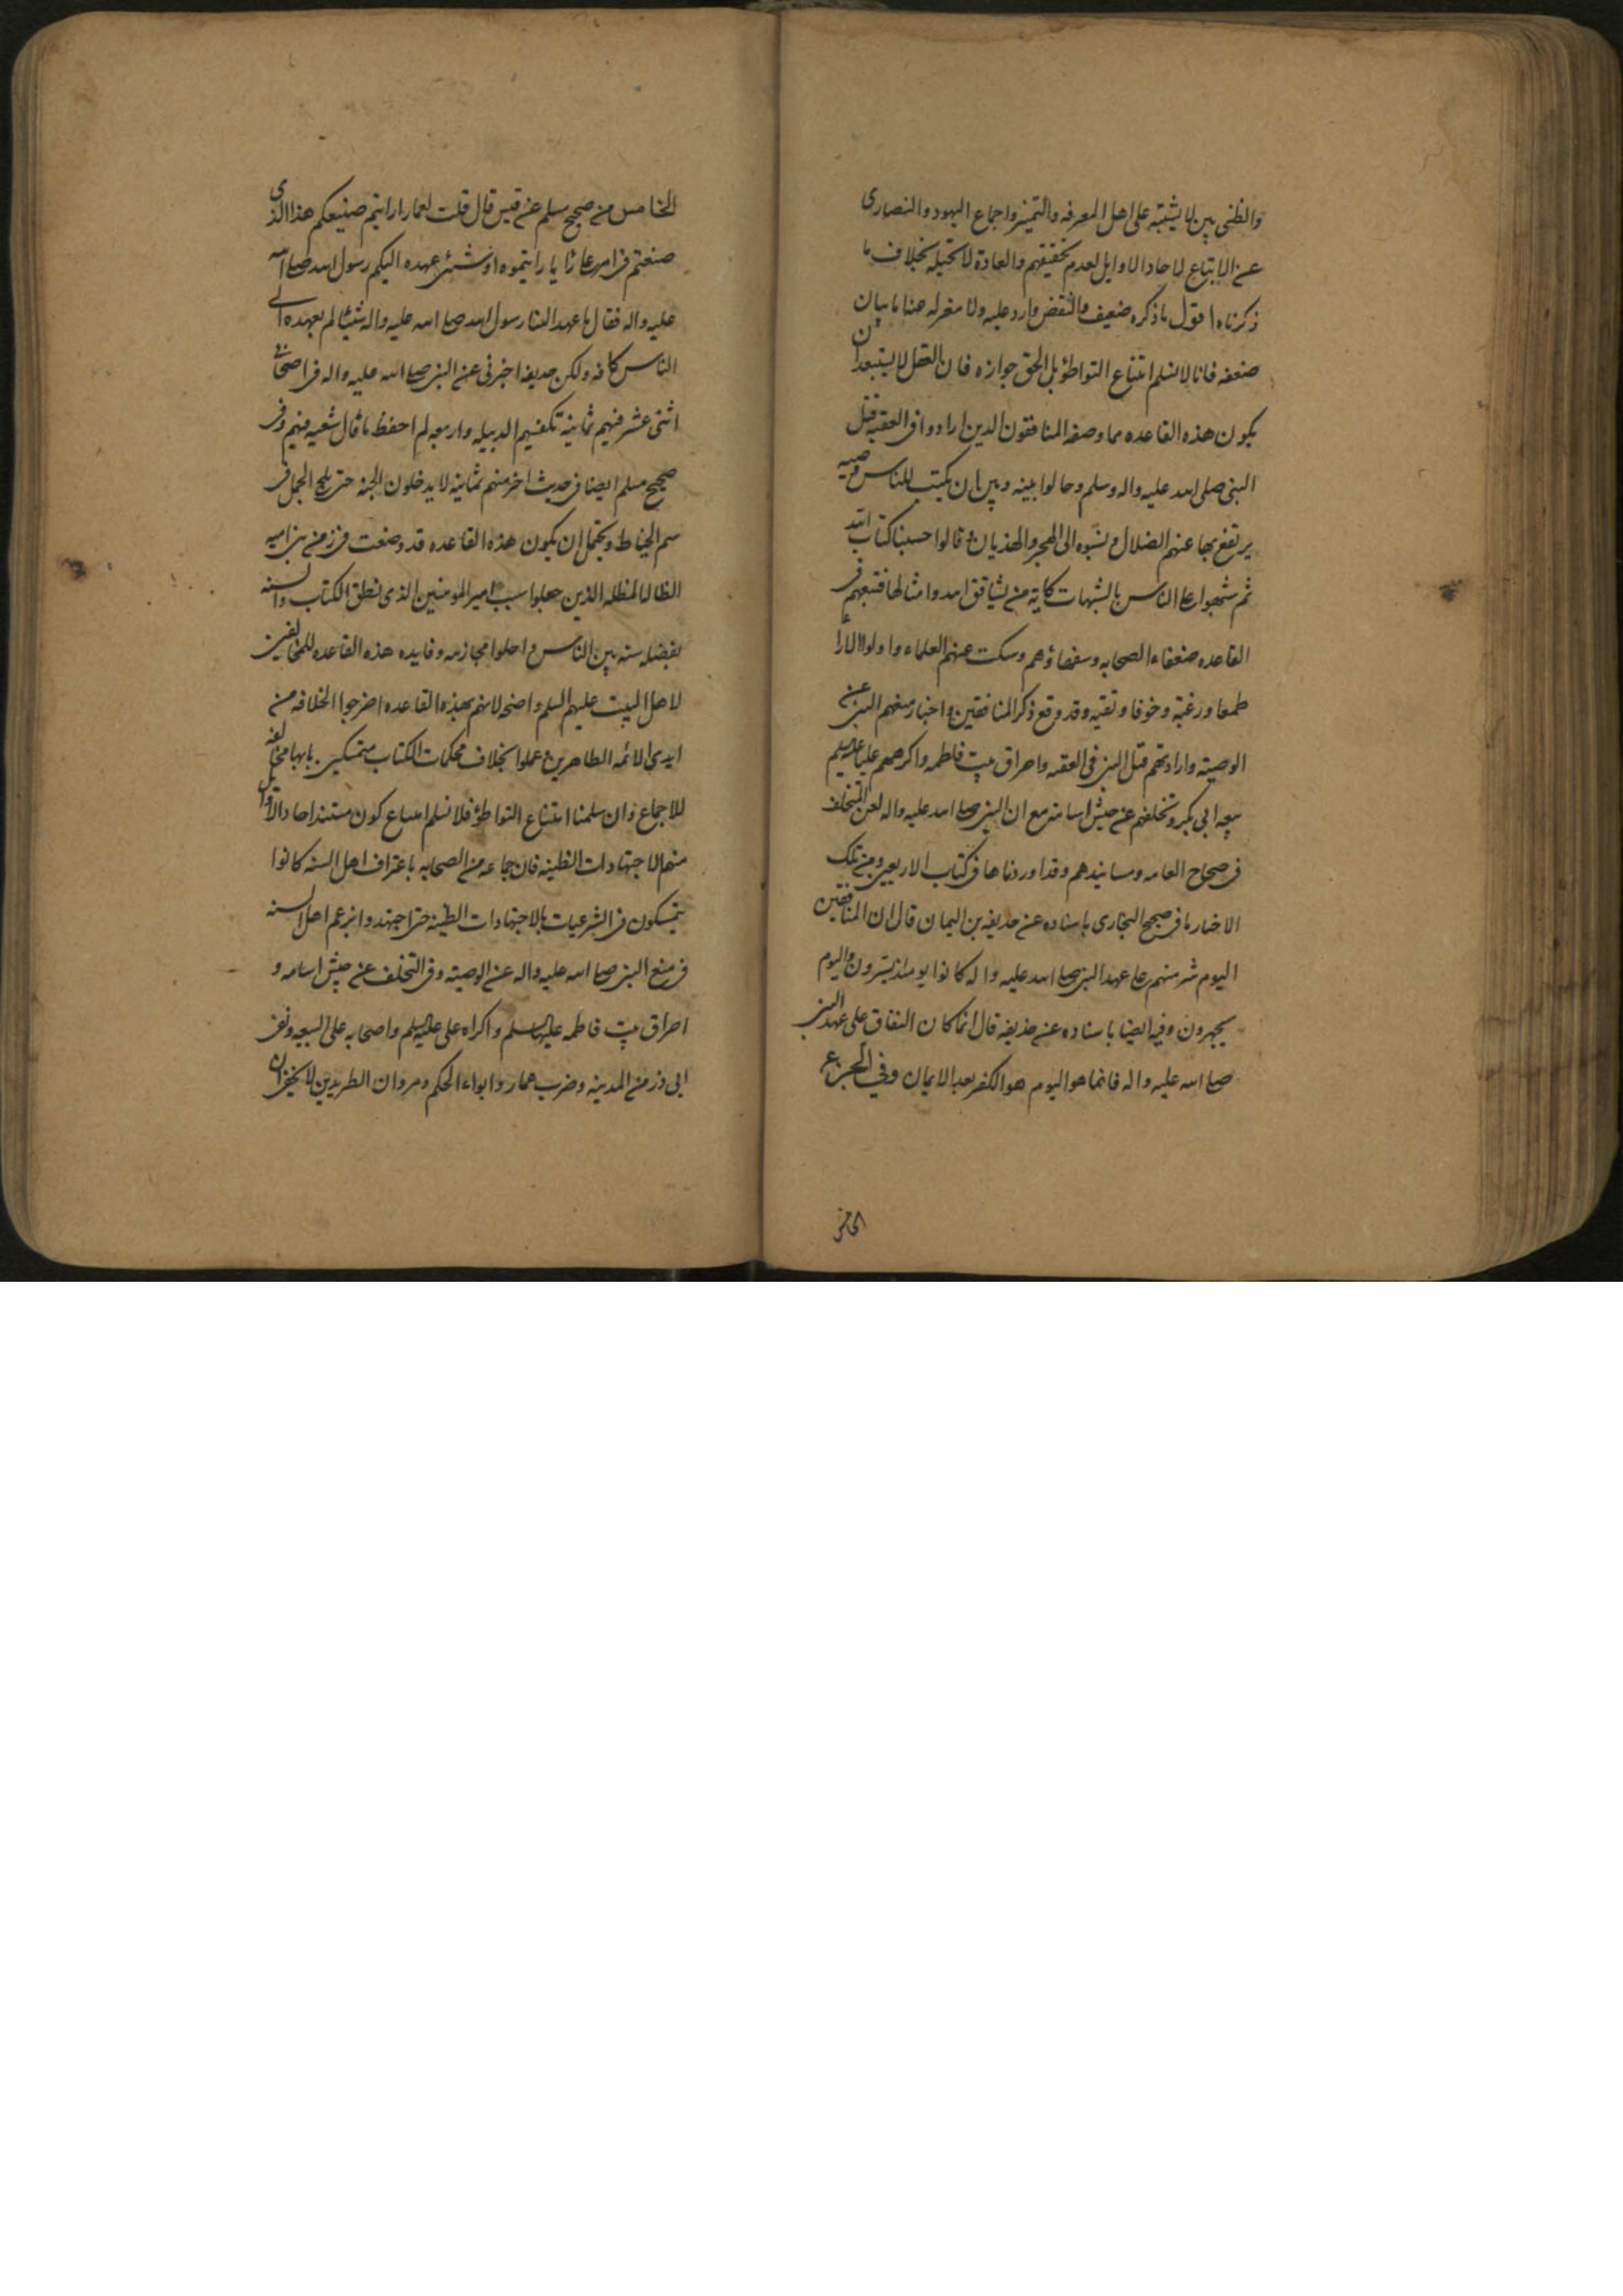 والظنى بين لا يشتبه على اهل المعرفه والتميز واجماع اليهود والنصارى
عن الاتباع لاحاد الاوايل لعدم تحقيقهم والعادة لا تحيله بخلاف ما
ذكرناه اقول ما ذكره ضعيف والنقض وارد عليه ولا مفر له عنه اما بيان
ضعفه فانا لا نسلم امتناع التواطؤ بل الحق جوازه فان العقل لا يستبعد ان
يكون هذه القاعده مما وضعه المنافقون الدين ارادوا فى العقبه قتل
النبى صلى الله عليه واله وسلم وحالوا بينه وبين ان يكتب للناس وصيه
يرتفع بها عنهم الضلال ونسبوه الى الهجر والهذيان و قالوا حسبنا كتاب الله
ثم شبهوا على الناس بالشبهات كاية من يشاقق الله وامثالها فتبعهم فى
القاعده ضعفاء الصحابه وسفهاؤهم وسكت عنهم العلماء واولوا الارا
طمعا ورغبة وخوفا وتقيه وقد وقع ذكر المنافقين واخبار منعهم النبى عن
الوصيته وارادتهم قتل النبى فى العقبه واحراق بيت فاطمه واكراههم عليا عليه السلم
بيعه ابى بكر وتخلفهم عن جيش اسامه مع ان النبى صلى الله عليه واله لعن المتخلف
فى صحاح العامه ومسانيدهم وقد اوردناها فى كتاب الاربعين ومن تلك
الاخبار ما فى صحيح البخارى باسناده عن حذيفه بن اليمان قال ان المنافقين
اليوم شر منهم على عهد النبى صلى الله عليه واله كانوا يومئذ يسرون واليوم
يجهرون وفيه ايضا باسناده عن حذيفه قال انما كان النفاق على عهد النبى
صلى الله عليه واله فانما هو اليوم هو الكفر بعد الايمان وفي الجزء
الخامس
الخامس من صحيح مسلم عن قيس قال قلت لعمار ارايتم صنيعكم هذا الذى
صنعتم فى امر على ارايا رايتموه او شئ عهده اليكم رسول الله صلى الله
عليه واله فقال ما عهد الينا رسول الله صلى الله عليه واله شيئا لم يعهده الى
الناس كافه ولكن حذيفه اخبرنى عن النبى صلى الله عليه واله فى اصحابى
اثنى عشر فيهم ثمانية تكفيهم الدبيله واربعه لم احفظ ما قال شعبه فيهم وفى
صحيح مسلم ايضا فى حديث اخر منهم ثمانية لا يدخلون الجنة حتى يلج الجمل فى
سم الخياط ويحتمل ان يكون هذه القاعده قد وضعت فى زمن بنى اميه
الظالمه الذين جعلوا سب امير المومنين الذى نطق الكتاب والسنه
بفضله سنه بين الناس واحلوا محارمه وفايده هذه القاعده للمخالفين
لاهل البيت عليهم السلم واضحه لانهم بهذه القاعده اخرجوا الخلافه من
ايدى الائمه الطاهرين و عملوا بخلاف محكمات الكتاب متمسكين بانها مخالفه
للاجماع وان سلمنا امتناع التواطؤ فلا نسلم امتناع كون مستند احاد الاوايل
منهم الاجتهادات الظنيه فان جماعه من الصحابه باعتراف اهل السنه كانوا
يتمسكون فى الشرعيات بالاجتهادات الظنيه حتى اجتهدوا بزعم اهل السنه
فى منع النبى صلى الله عليه واله عن الوصيته وفى التخلف عن جيش اسامه و
احراق بيت فاطمه عليها السلم واكراه على عليه السلم واصحابه على البيعه ونفى
ابى ذر من المدينه وضرب عمار وايواء الحكم ومروان الطريدين لا يخفى ان